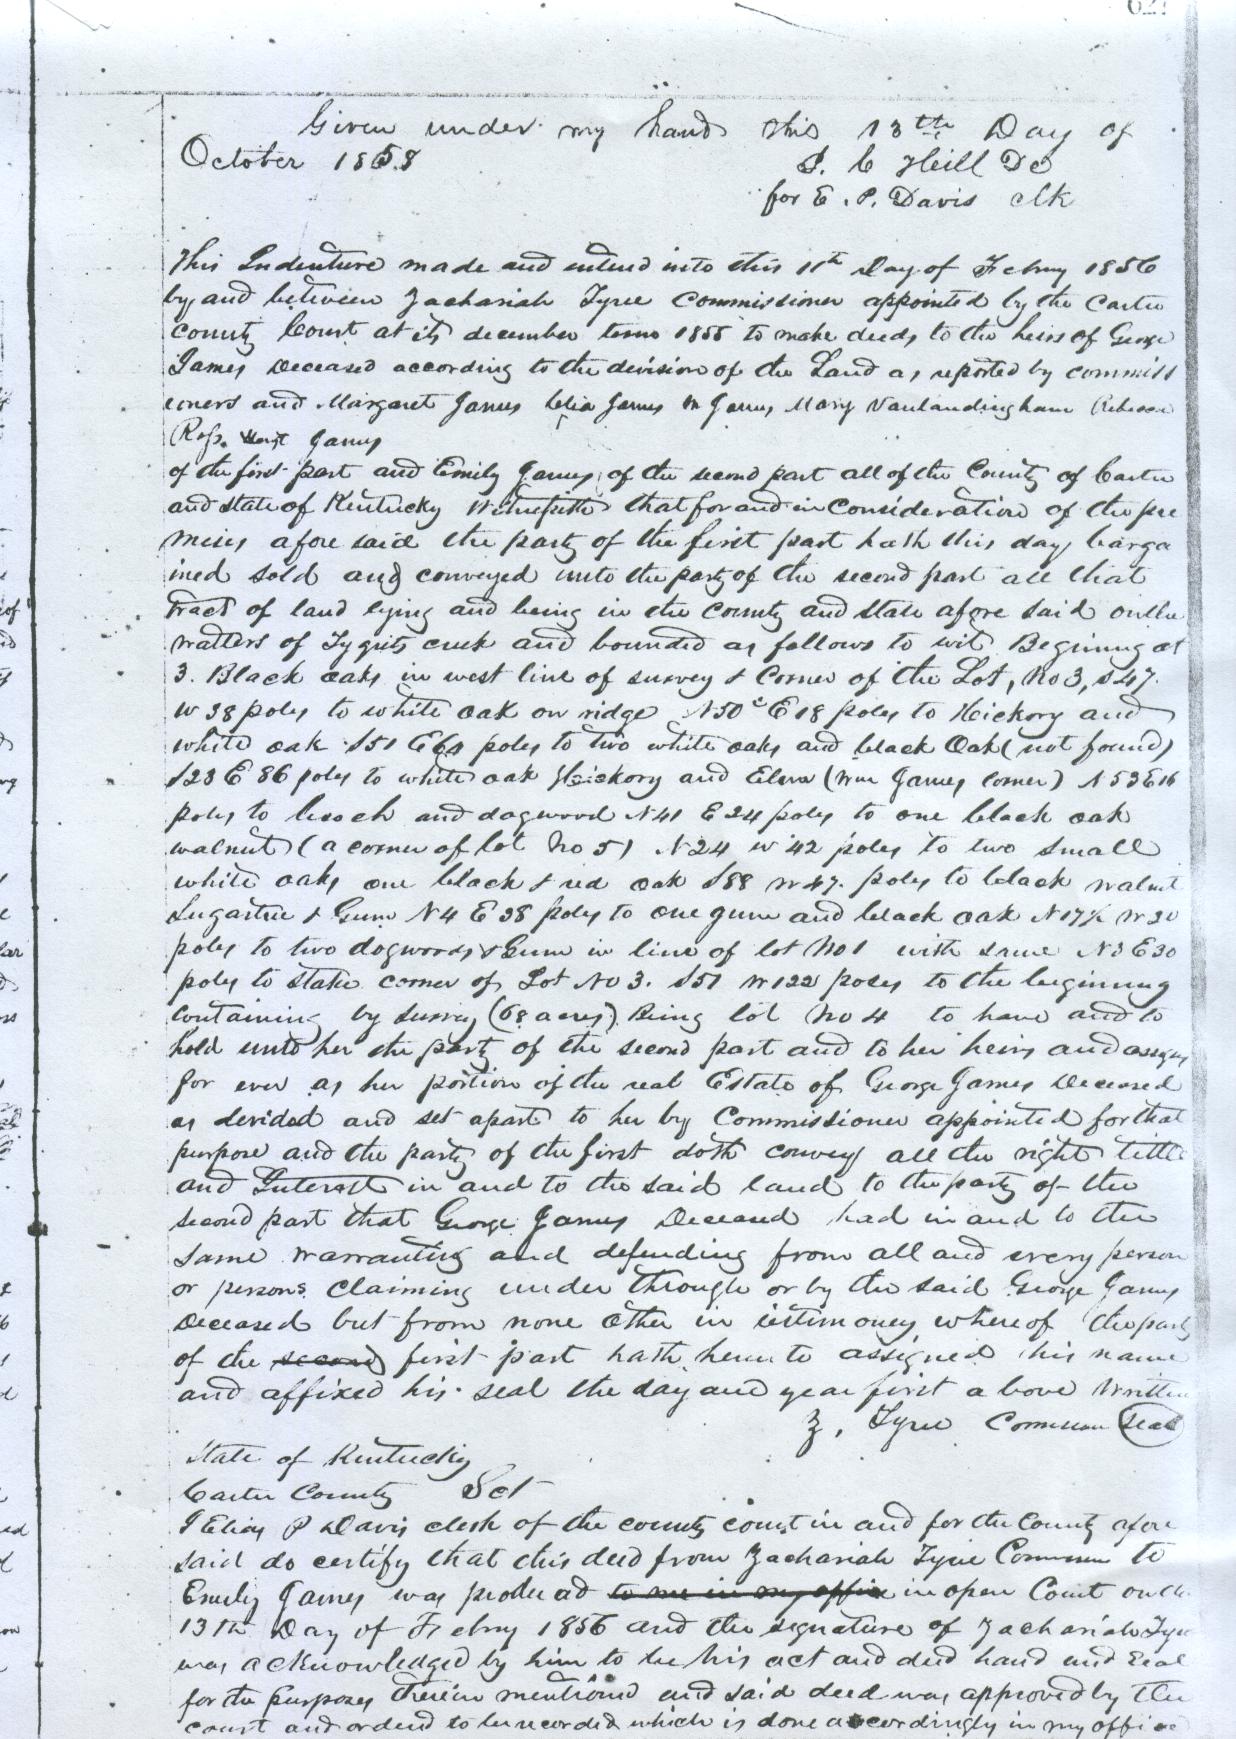 627
Given under my hand this 13th Day of
October 1858
S. C Heill Dc
for E. P. Davis clk
This Indenture made and entend into this 11th Day of Febuy 1856
by and between Zachariah Tyree Commissioner appointed by the Carter
county Court at its december term 1855 to make deeds to the heirs of George
James Deceased according to the division of the Land as reported by commiss
ioners and Margaret James Celia James Wm James Mary Vanlandingham Rebecca
Ross James
of the first part and Emily James of the second part all of the County of Carter
and State of Kentucky Witnesseth that for and in Consideration of the pre
mises afore said the party of the first part hath this day barga
ined sold and conveyed unto the party of the second part all that
tract of land lying and being in the county and state afore said on the
watters of Tygrets creek and bounded as follows to wit Begining at
3. Black oaks in west line of survey & Corner of the Lot, No 3, S47.
W 38 poles to white oak on ridge N50° E18 poles to Hickory and
white oak S51 E64 poles to two white oaks and black Oak (not found)
S23 E 86 poles to white oak Hickory and Elem (Wm James corner) N53E16
poles to beech and dogwood N41 E24 poles to one black oak
walnut (a corner of lot No 5) N24 W 42 poles to two small
white oaks one black & red oak S88 W47. poles to black walnut
Sugartree & Gum N4 E 38 poles to one gum and black oak N17½ W30
poles to two dogwoods & Gum in line of lot No 1 with same N3 E30
poles to stake corner of Lot No 3. S51 W122 poles to the beginning
Containing by survey (68 acres) Being lot No 4 to have and to
hold unto her the party of the second part and to her heirs and assigns
for ever as her portion of the real Estate of George James Deceased
as devided and set apart to her by Commissioner appointed for that
purpose and the party of the first doth convey all the right tittle
and Interest in and to the said land to the party of the
second part that George James Deceased had in and to the
same warranting and defending from all and every person
or persons claiming under through or by the said George James
Deceased but from none other in testimoney whereof the party
of the second first part hath herunto assigned his name
and affixed his seal the day and year first above written
Z, Tyree Seal
State of Kentucky
Carter County Sct
I Elias P Davis clerk of the county court in and for the County afore
said do certify that this deed from Zachariah Tyree to
Emily James was produced to me in my office in open Court on the
13th Day of Febuy 1856 and the signature of Zachariah Tyree
was acknowledged by him to be his act and deed hand and seal
for the purposes therein mentiond and said deed was approved by the
court and orderd to be recorded which is done accordingly in my office